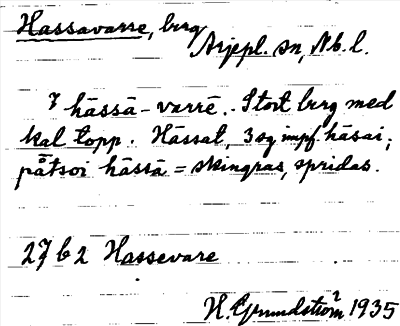 Hassavarre, berg
Arjepl. sn, Nb. l.
hāssā-varrē. Stort berg med
kal topp. Hāssat, 3 sg impf. hāsai;
påtsoi hāssā = skingras, spridas.
27 b 2 Hassevare
H. Grundström 1935